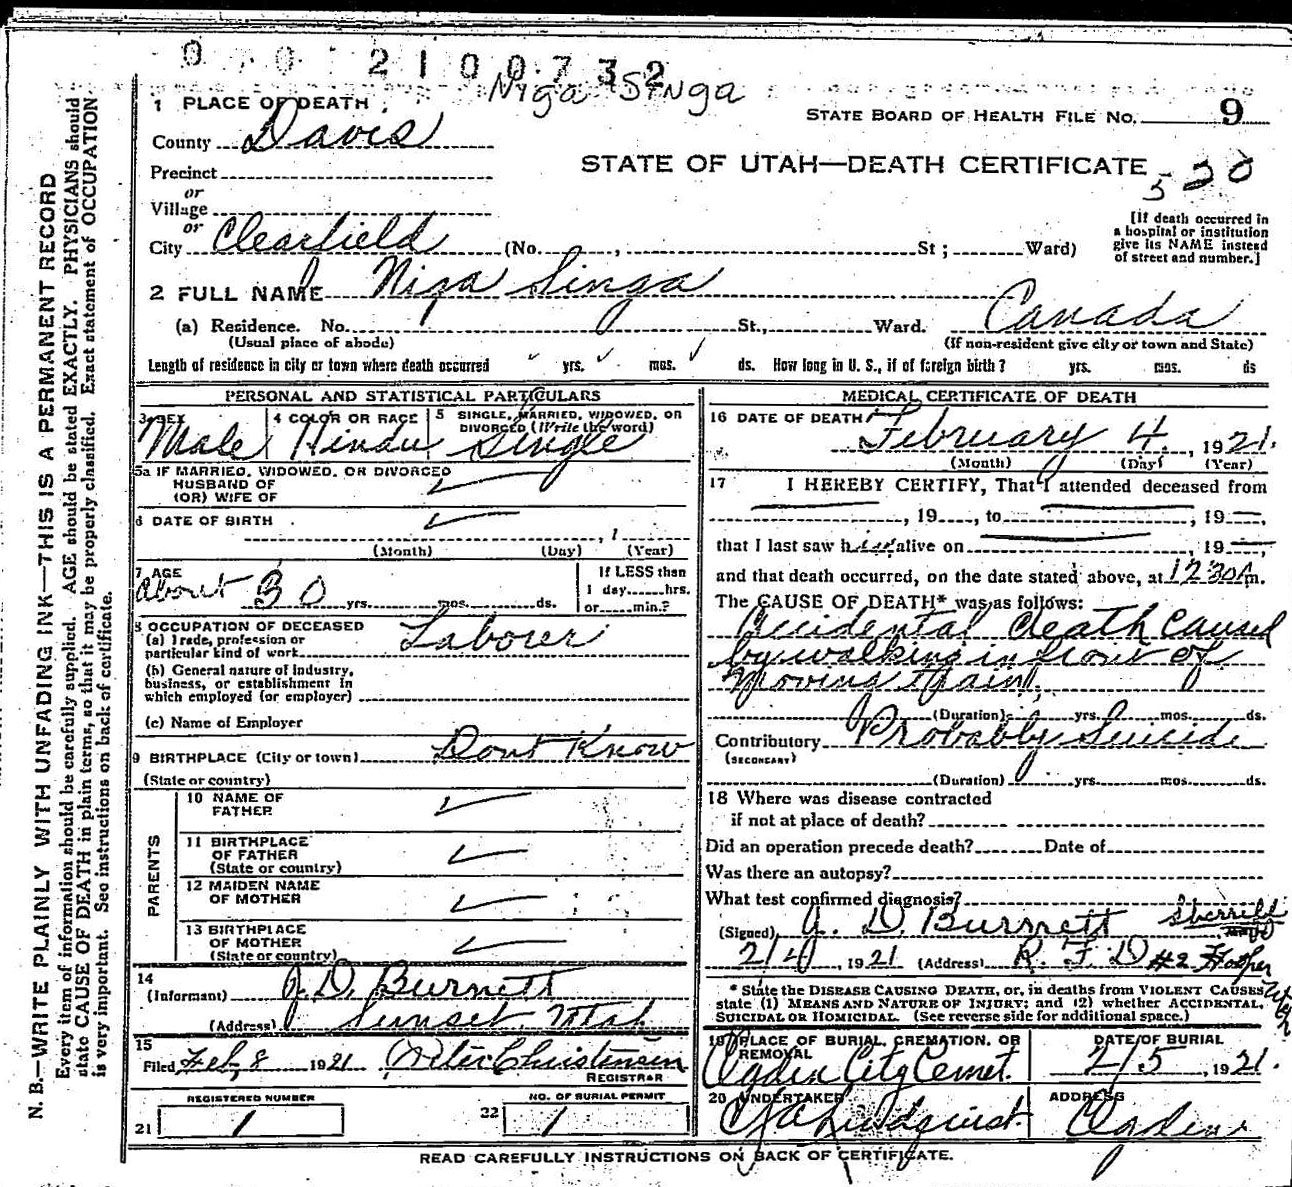 0 0 2100732
Niga Singa
1 PLACE OF DEATH
STATE BOARD OF HEALTH FILE No. 9
County Davis
STATE OF UTAH—DEATH CERTIFICATE
530
Precinct
or
Village
or
City Clearfield (No. , St ; Ward)
[If death occurred in
a hospital or institution
give its NAME instead
of street and number.]
2 FULL NAME Niga Singa
(a) Residence. No. St., Ward. Canada
(Usual place of abode) (If non-resident give city or town and State)
Length of residence in city or town where death occurred yrs. mos. ds. How long in U. S., if of foreign birth? yrs. mos. ds
PERSONAL AND STATISTICAL PARTICULARS
3 SEX 4 COLOR OR RACE 5 SINGLE, MARRIED, WIDOWED, OR
DIVORCED (Write the word)
Male Hindu Single
5a IF MARRIED, WIDOWED, OR DIVORCED
HUSBAND OF
(OR) WIFE OF
6 DATE OF BIRTH
, 1
(Month) (Day) (Year)
7 AGE If LESS than
1 day......hrs.
or......min.?
About 30 yrs. mos. ds.
8 OCCUPATION OF DECEASED
(a) Trade, profession or
particular kind of work Laborer
(b) General nature of industry,
business, or establishment in
which employed (or employer)
(c) Name of Employer
9 BIRTHPLACE (City or town) Dont Know
(State or country)
PARENTS
10 NAME OF
FATHER
11 BIRTHPLACE
OF FATHER
(State or country)
12 MAIDEN NAME
OF MOTHER
13 BIRTHPLACE
OF MOTHER
(State or country)
14
(Informant) J. D. Burnett
(Address) Sunset Utah
15
Filed Feb, 8 1921 Peter Christensen
REGISTRAR
REGISTERED NUMBER NO. OF BURIAL PERMIT
21 1 22 1
MEDICAL CERTIFICATE OF DEATH
16 DATE OF DEATH
February 4, 1921.
(Month) (Day) (Year)
17 I HEREBY CERTIFY, That I attended deceased from
, 19 , to , 19 ,
that I last saw h alive on , 19 ,
and that death occurred, on the date stated above, at 12 30 A m.
The CAUSE OF DEATH* was as follows:
Accidental death caused
by walking in front of
Moving Train,
(Duration) yrs. mos. ds.
Contributory Probably Suicide
(SECONDARY)
(Duration) yrs. mos. ds.
18 Where was disease contracted
if not at place of death?
Did an operation precede death? Date of
Was there an autopsy?
What test confirmed diagnosis?
(Signed) J. D. Burnett
2/4, 1921 (Address) R. F. D #2 Hooper
Utah
* State the DISEASE CAUSING DEATH, or, in deaths from VIOLENT CAUSES
state (1) MEANS AND NATURE OF INJURY; and (2) whether ACCIDENTAL,
SUICIDAL OR HOMICIDAL. (See reverse side for additional space.)
19 PLACE OF BURIAL, CREMATION, OR
REMOVAL
DATE OF BURIAL
Ogden City Cemet. 2/5, 1921.
20 UNDERTAKER ADDRESS
Lindquist. Ogden
READ CAREFULLY INSTRUCTIONS ON BACK OF CERTIFICATE.
N. B.—WRITE PLAINLY WITH UNFADING INK—THIS IS A PERMANENT RECORD
Every item of information should be carefully supplied. AGE should be stated EXACTLY. PHYSICIANS should
state CAUSE OF DEATH in plain terms, so that it may be properly classified. Exact statement of OCCUPATION
is very important. See instructions on back of certificate.